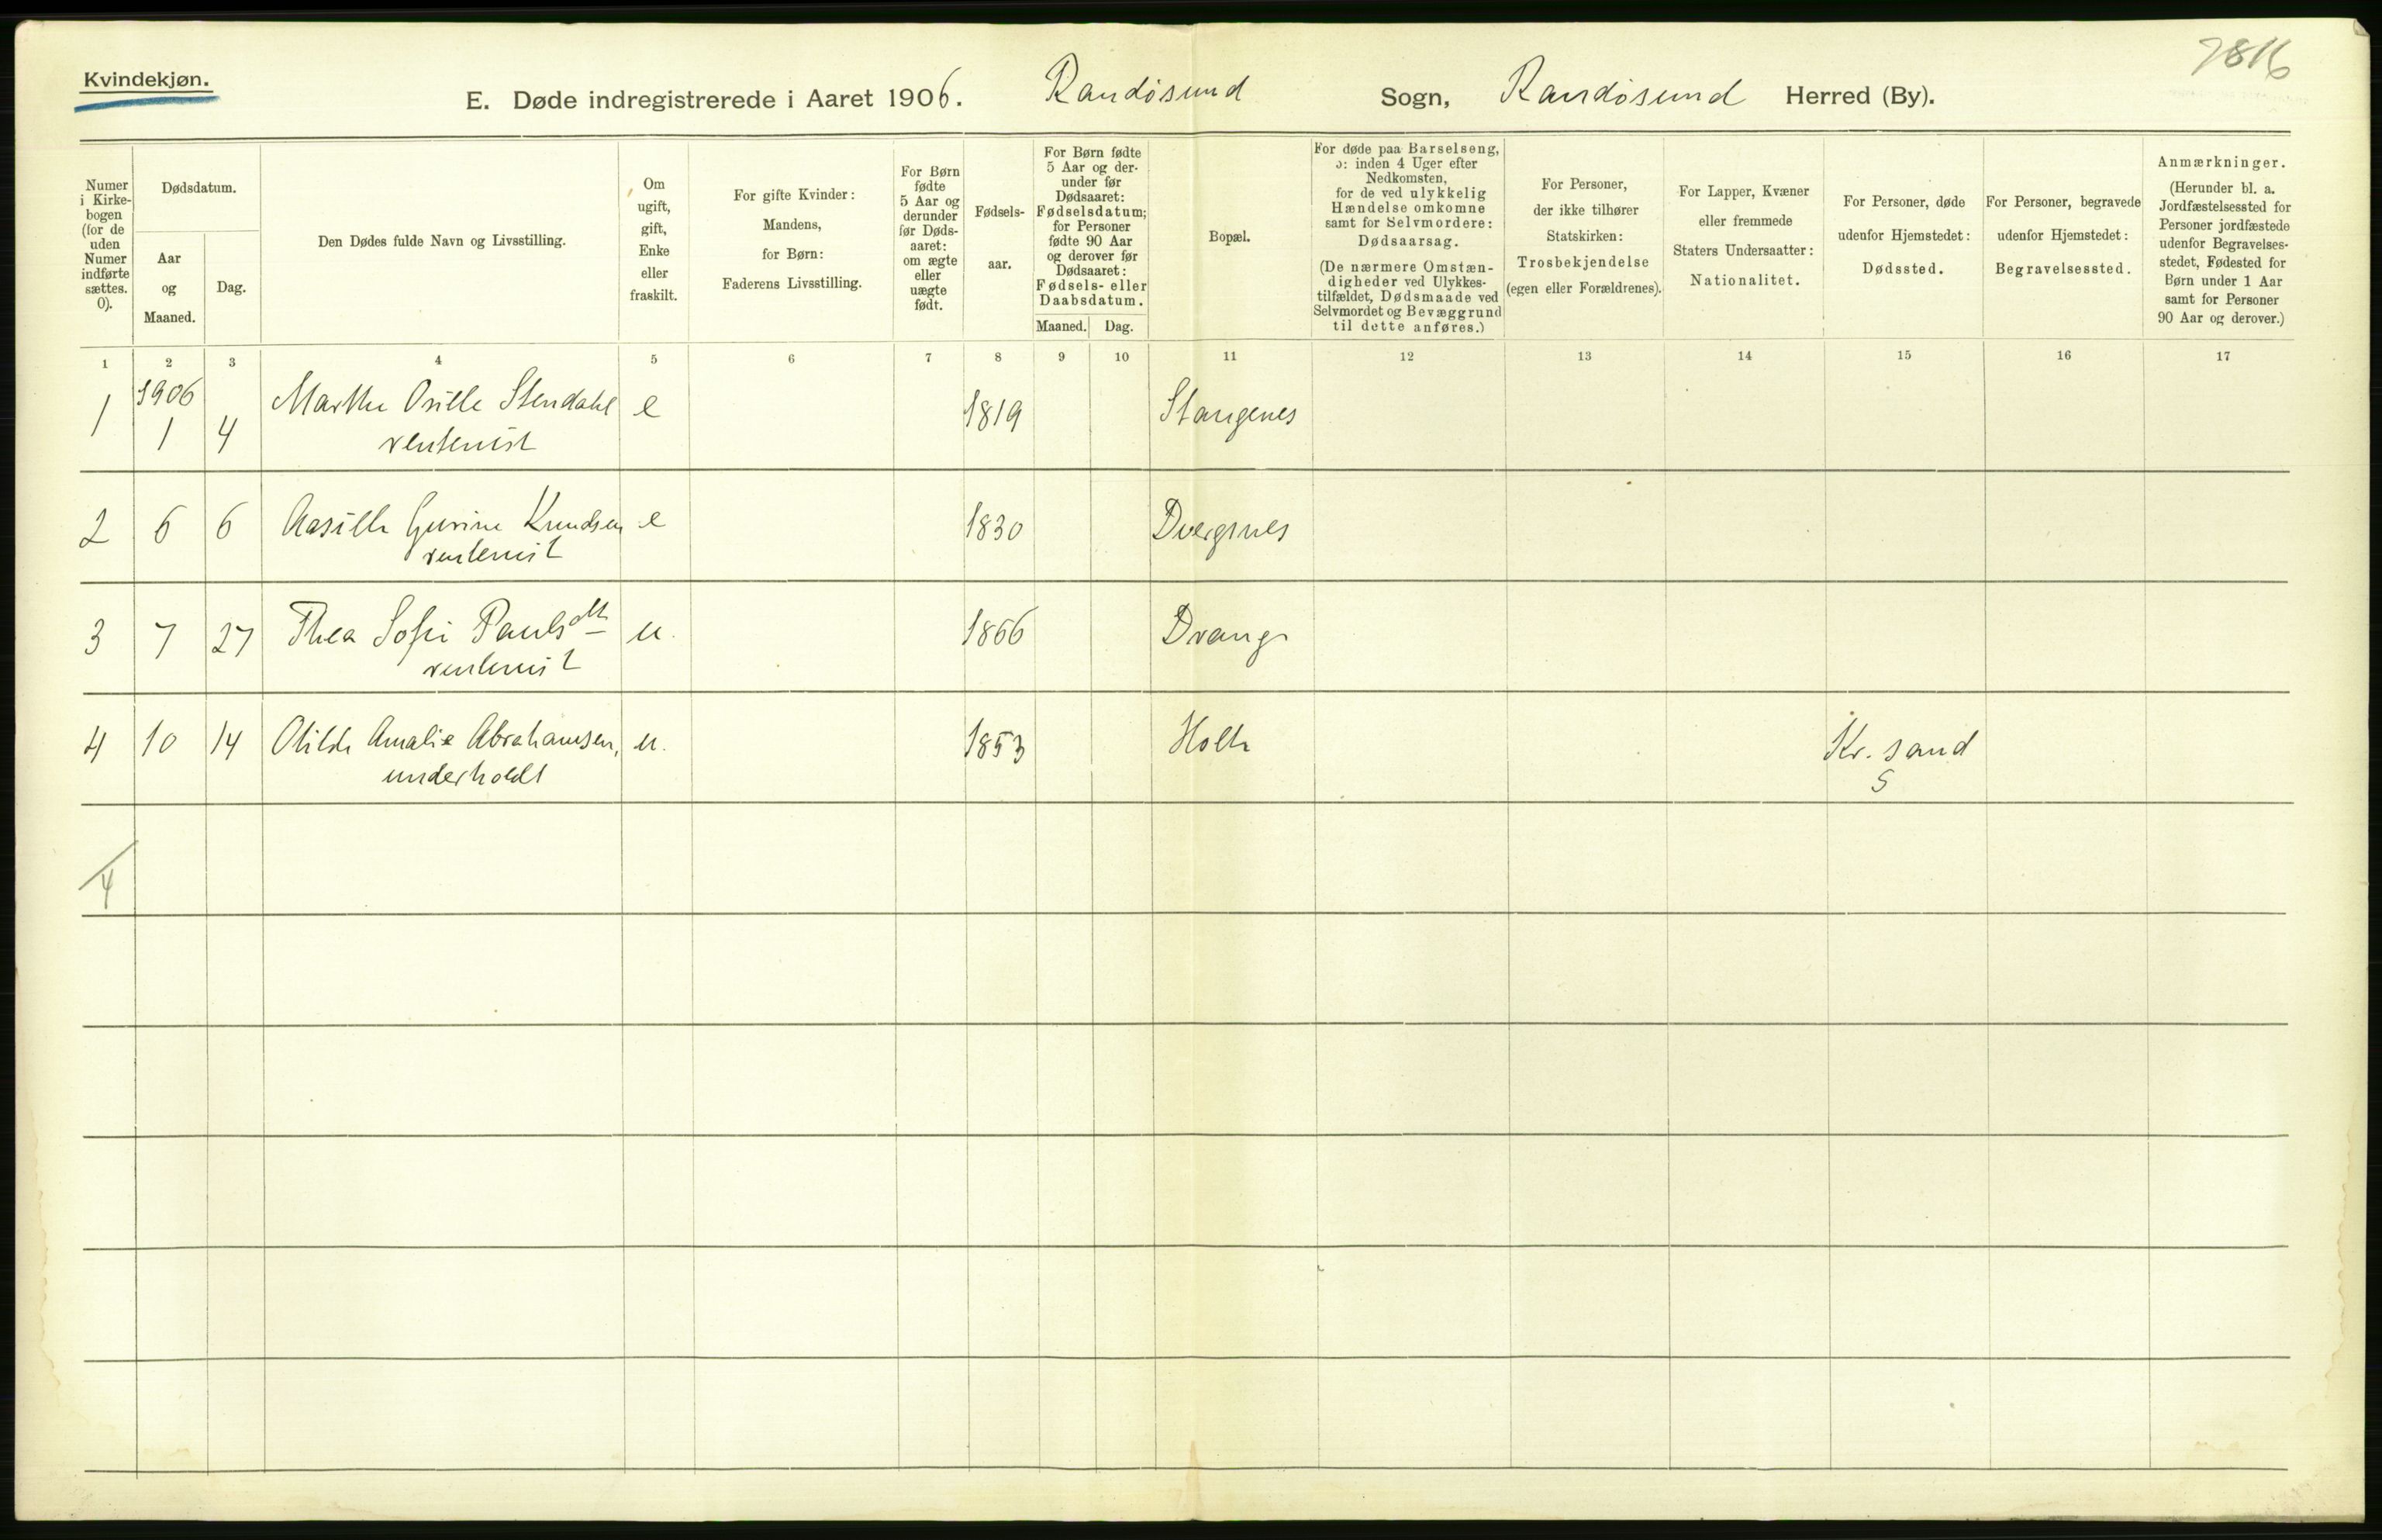 7816
Kvindekjøn.
E. Døde indregistrerede i Aaret 1906. Randøsund Sogn, Randøsund Herred (By).
Numer
i Kirke-
bogen
(for de
uden
Numer
indførte
sættes.
0).
Dødsdatum.
Aar
og
Maaned.
Dag.
Den Dødes fulde Navn og Livsstilling.
Om
ugift,
gift,
Enke
eller
fraskilt.
For gifte Kvinder:
Mandens,
for Børn:
Faderens Livsstilling.
For Børn
fødte
5 Aar og
derunder
før Døds-
aaret:
om ægte
eller
uægte
født.
Fødsels-
aar.
For Børn fødte
5 Aar og der-
under før
Dødsaaret:
Fødselsdatum;
for Personer
fødte 90 Aar
og derover før
Dødsaaret:
Fødsels- eller
Daabsdatum.
Maaned. Dag.
Bopæl.
For døde paa Barselseng,
ɔ: inden 4 Uger efter
Nedkomsten,
for de ved ulykkelig
Hændelse omkomne
samt for Selvmordere:
Dødsaarsag.
(De nærmere Omstæn-
digheder ved Ulykkes-
tilfældet, Dødsmaade ved
Selvmordet og Bevæggrund
til dette anføres.)
For Personer,
der ikke tilhører
Statskirken:
Trosbekjendelse
(egen eller Forældrenes).
For Lapper, Kvæner
eller fremmede
Staters Undersaatter:
Nationalitet.
For Personer, døde
udenfor Hjemstedet:
Dødssted.
For Personer, begravede
udenfor Hjemstedet:
Begravelsessted.
Anmærkninger.
(Herunder bl. a.
Jordfæstelsessted for
Personer jordfæstede
udenfor Begravelses-
stedet, Fødested for
Børn under 1 Aar
samt for Personer
90 Aar og derover.)
1 2 3 4 5 6 7 8 9 10 11 12 13 14 15 16 17
1906
1 1 4 Marthe Osille Stendahl e 1819 Stangenes
rentenist
2 6 6 Aasille Gurine Knudsen e 1830 Dvergsnes
rentenist
3 7 27 Thea Sofie Paulsdtt u. 1866 Drange
rentenist
4 10 14 Otilde Amalie Abrahamsen, u. 1853 Holte Kr. sand
underholdt S
4